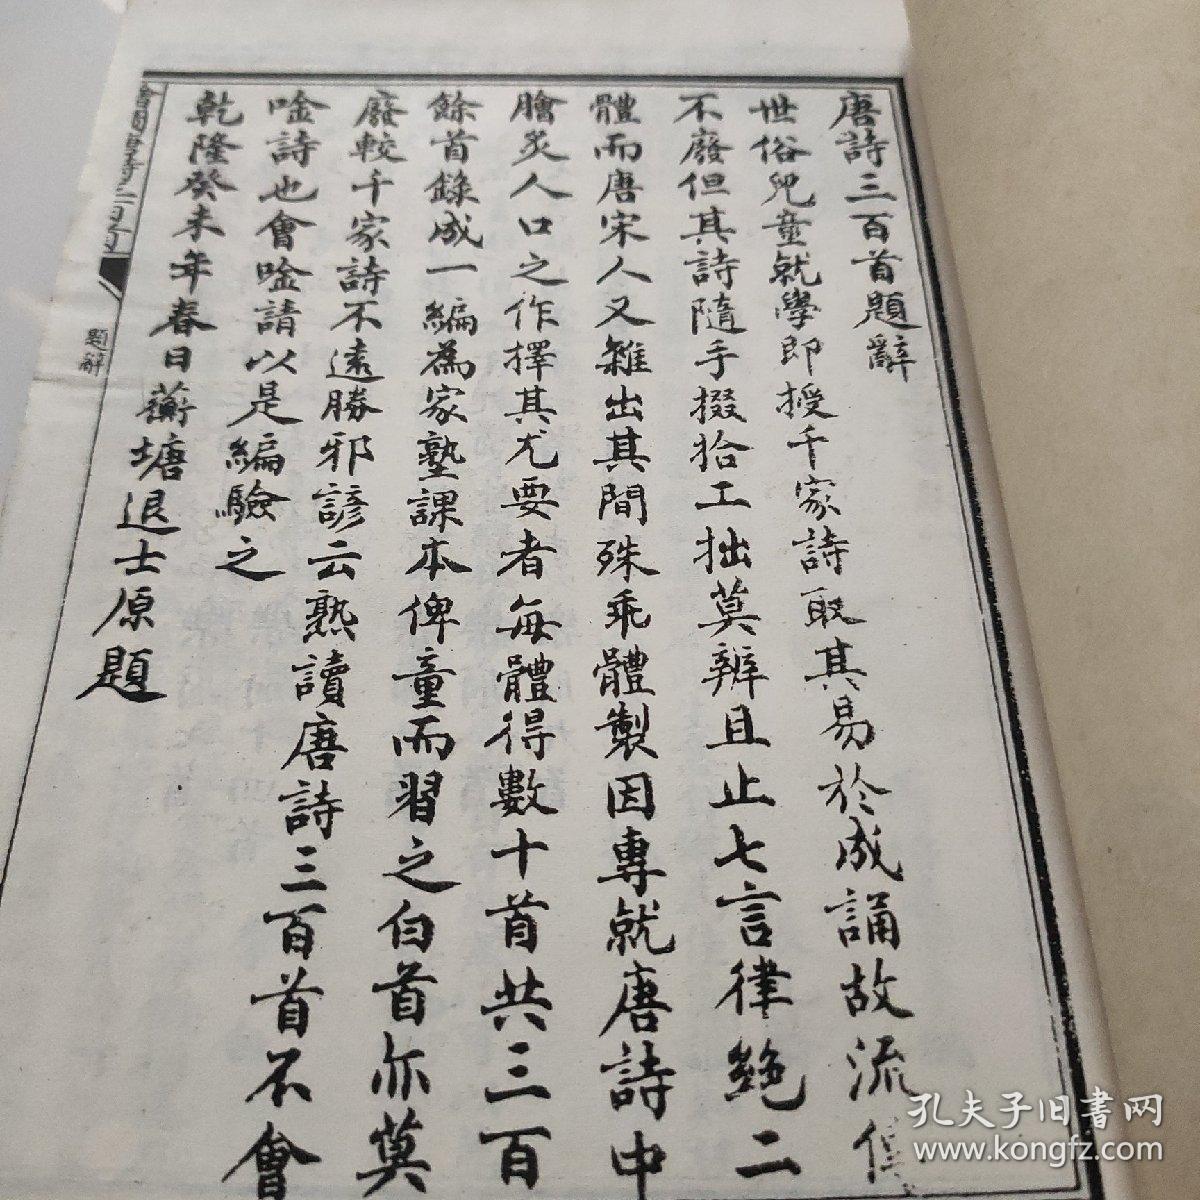 唐詩三百首題辭
世俗兒童就學即授千家詩取其易於成誦故流傳
不廢但其詩隨手掇拾工拙莫辨且止七言律絕二
體而唐宋人又雜出其間殊乖體製因專就唐詩中
膾炙人口之作擇其尤要者每體得數十首共三百
餘首錄成一編為家塾課本俾童而習之白首亦莫
廢較千家詩不遠勝邪諺云熟讀唐詩三百首不會
唫詩也會唫請以是編驗之
乾隆癸未年春日蘅塘退士原題
繪圖唐詩三百首
題辭
孔夫子旧书网
www.kongfz.com